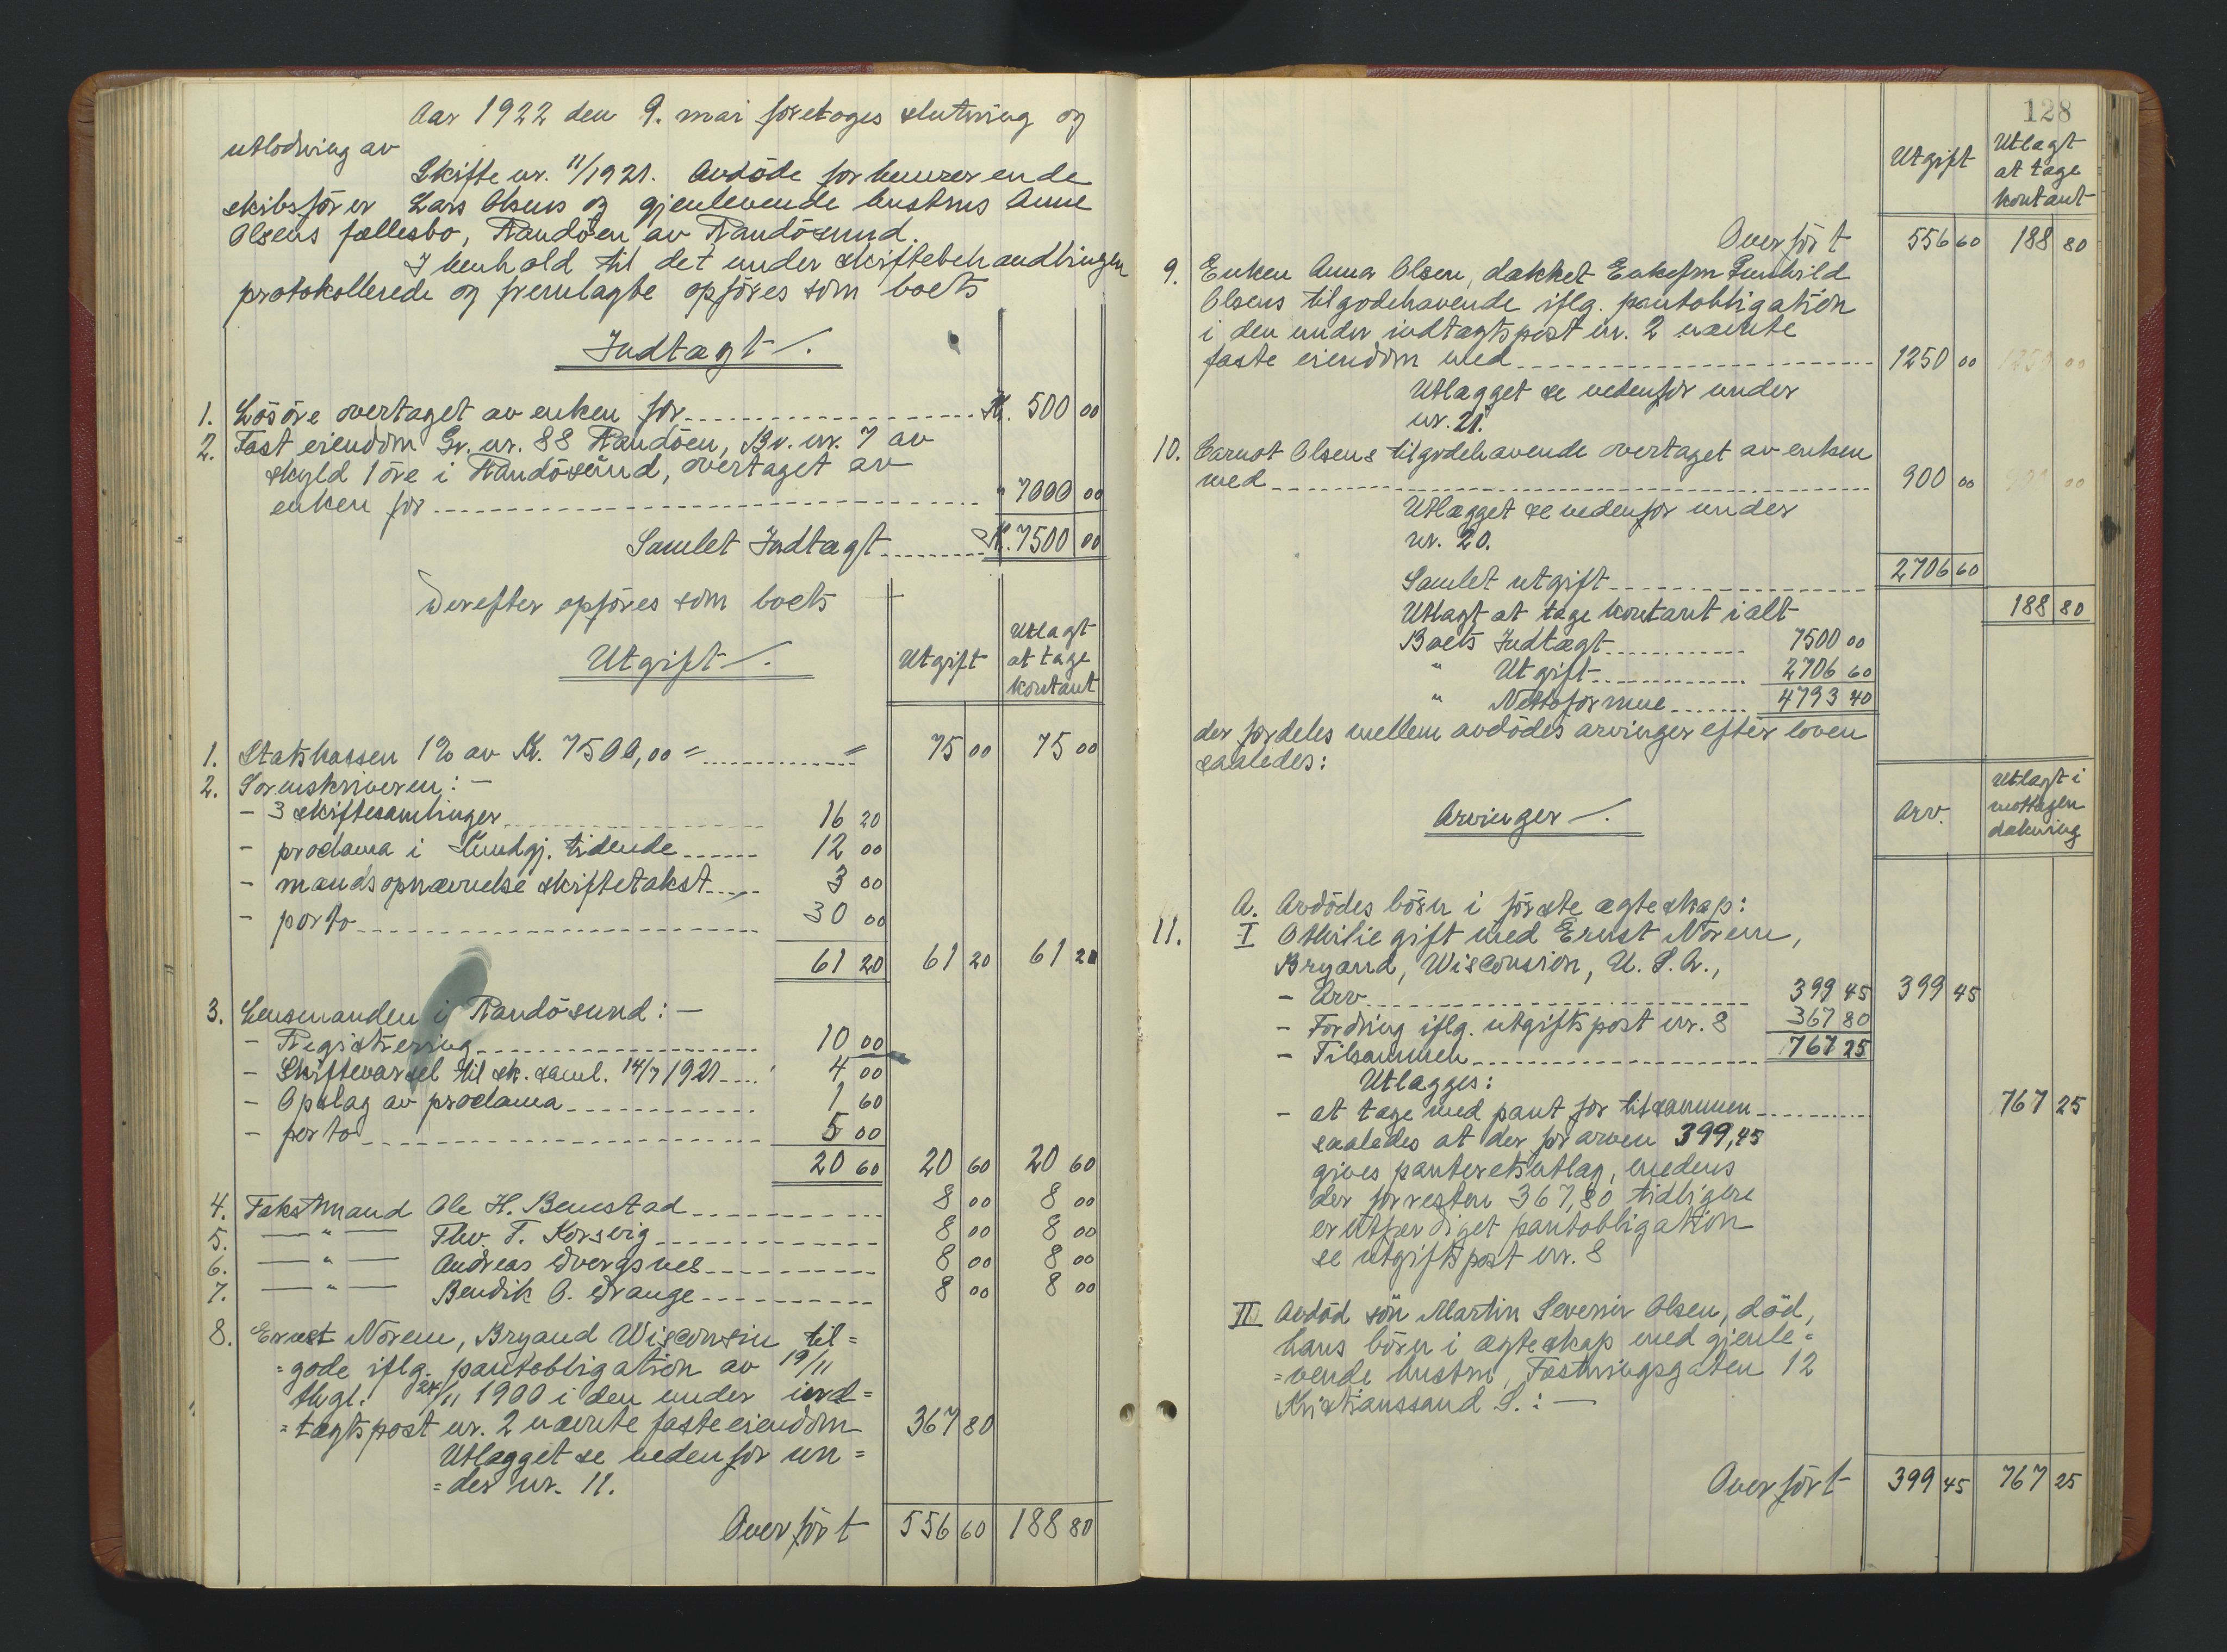 Aar 1922 den 9. mai foretoges slutning og
utlodning av
Skifte nr. 11/1921. Avdöde forhenværende
skibsförer Lars Olsens og gjenlevende hustrus Anne
Olsens fællesbo, Randöen av Randösund.
I henhold til det under skiftebehandlingen
protokollerede og fremlagte opföres som boets
Indtægt /.
1. Lösöre overtaget av enken for K. 500 00
2. Fast eiendom Gr. nr. 88 Randöen, Br. nr. 7 av
skyld 1 öre i Randösund, overtaget av
enken for " 7000 00
Samlet Indtægt K. 7500 00
Derefter opföres som boets
Utgift /. Utgift Utlagt at tage kontant
1. Statskassen 1% av K. 7500,00 = = 75 00 75 00
2. Sorenskriveren: -
- 3 skiftesamlinger 16 20
- proclama i Kundgj. tidende 12 00
- mandsopnævnelse skiftetakst 3 00
- porto 30 00
61 20 61 20 61 20
3. Lensmanden i Randösund: -
- Registrering 10 00
- Skiftevarsel til sk. saml. 14/7 1921 4 00
- Opslag av proclama 1 60
- porto 5 00
20 60 20 60 20 60
4. Takstmand Ole H. Benestad 8 00 8 00
5. — " — Thv. T. Korsvig 8 00 8 00
6. — " — Andreas Dvergsnes 8 00 8 00
7. — " — Bendik O. Drange 8 00 8 00
8. Ernest Norem, Bryand Wisconsin til=
=gode iflg. pantobligation av 19/11
thgl. 24/11 1900 i den under ind=
=tægtspost nr. 2 nævnte faste eiendom 367 80
Utlægget se nedenfor un=
=der nr. 11.
Overfört 556 60 188 80
128
Utgift Utlagt at tage kontant
Overfört 556 60 188 80
9. Enken Anna Olsen, dækket Enkefru Gunhild
Olsens tilgodehavende iflg. pantobligation
i den under indtægtspost nr. 2 nævnte
faste eiendom med 1250 00 1250 00
Utlægget se nedenfor under
nr. 21.
10. Carnot Olsens tilgodehavende overtaget av enken
med 900 00 900 00
Utlægget se nedenfor under
nr. 20.
Samlet utgift 2706 60
Utlagt at tage kontant ialt 188 80
Boets Indtægt 7500 00
" Utgift 2706 60
" Nettoformue 4793 40
der fordeles mellem avdödes arvinger efter loven
saaledes:
Arvinger /. Arv. Utlagt i mottagen dækning
A. Avdödes börn i förste ægteskap:
11. I Othilie gift med Ernst Norem,
Bryand, Wisconsion, U. S. A.,
- Arv 399 45 399 45
- Fordring iflg. utgiftspost nr. 8 367 80
- Tilsammen 767 25
Utlægges:
- at tage med pant for tilsammen 767 25
saaledes at der for arven 399,45
gives panteretsutlæg, medens
der for resten 367,80 tidligere
er utfærdiget pantobligation
se utgiftspost nr. 8
II Avdöd sön Martin Severin Olsen, död,
hans börn i ægteskap med gjenle=
=vende hustru, Fæstningsgaten 12
Kristianssand S.: —
Overfört 399 45 767 25